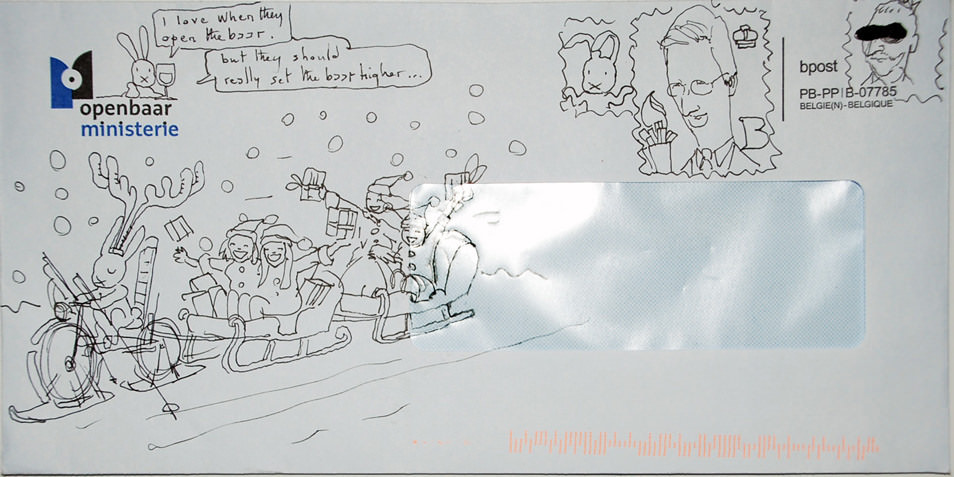 I love when they
open the baar.
but they should
really set the baar higher...
openbaar
ministerie
B
bpost
PB-PP|B-07785
BELGIE(N)-BELGIQUE